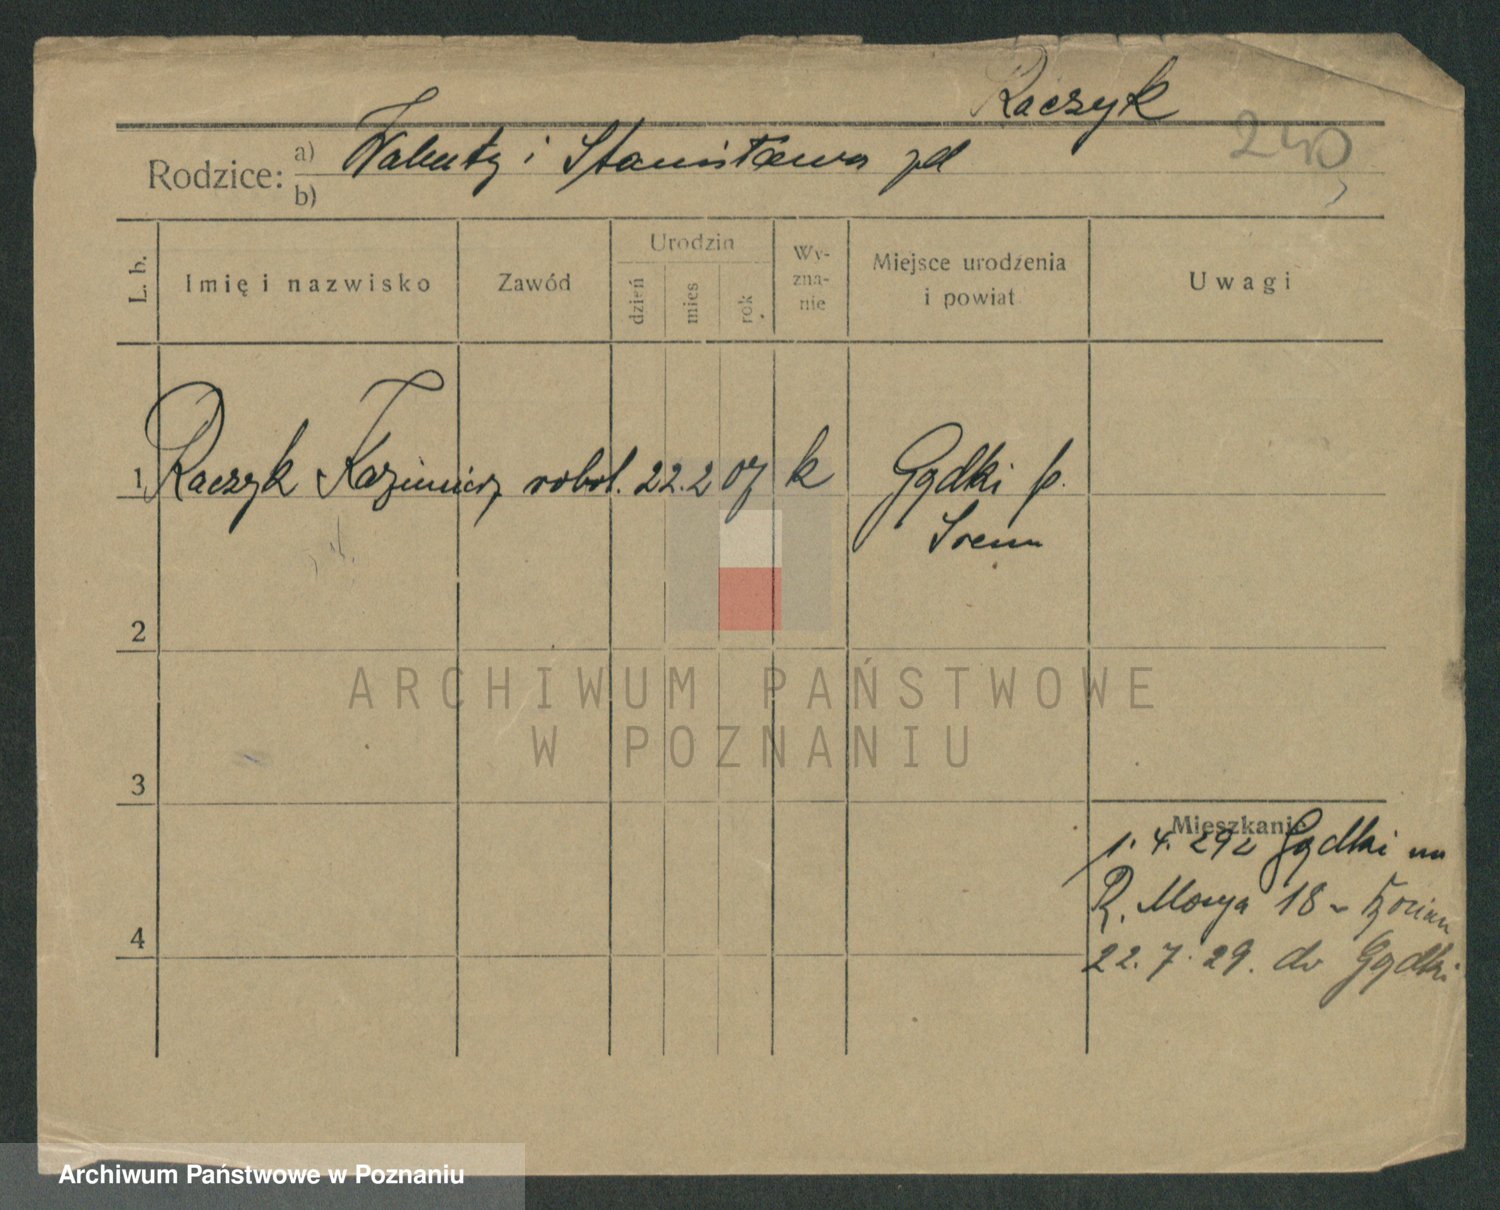 Raczyk
240
Rodzice: a) Walenty i Stanisława zd
b)
L. b. Imię i nazwisko Zawód Urodzin dzień mies rok Wy-zna-nie Miejsce urodzenia i powiat Uwagi
1 Raczyk Kazimierz robot. 22. 2 07 k Gądki p.
Śrem
2
ARCHIWUM PAŃSTWOWE
W POZNANIU
3
Mieszkanie
1. 4. 29 Gądki
18
4
22. 7. 29. do Gądki
Archiwum Państwowe w Poznaniu